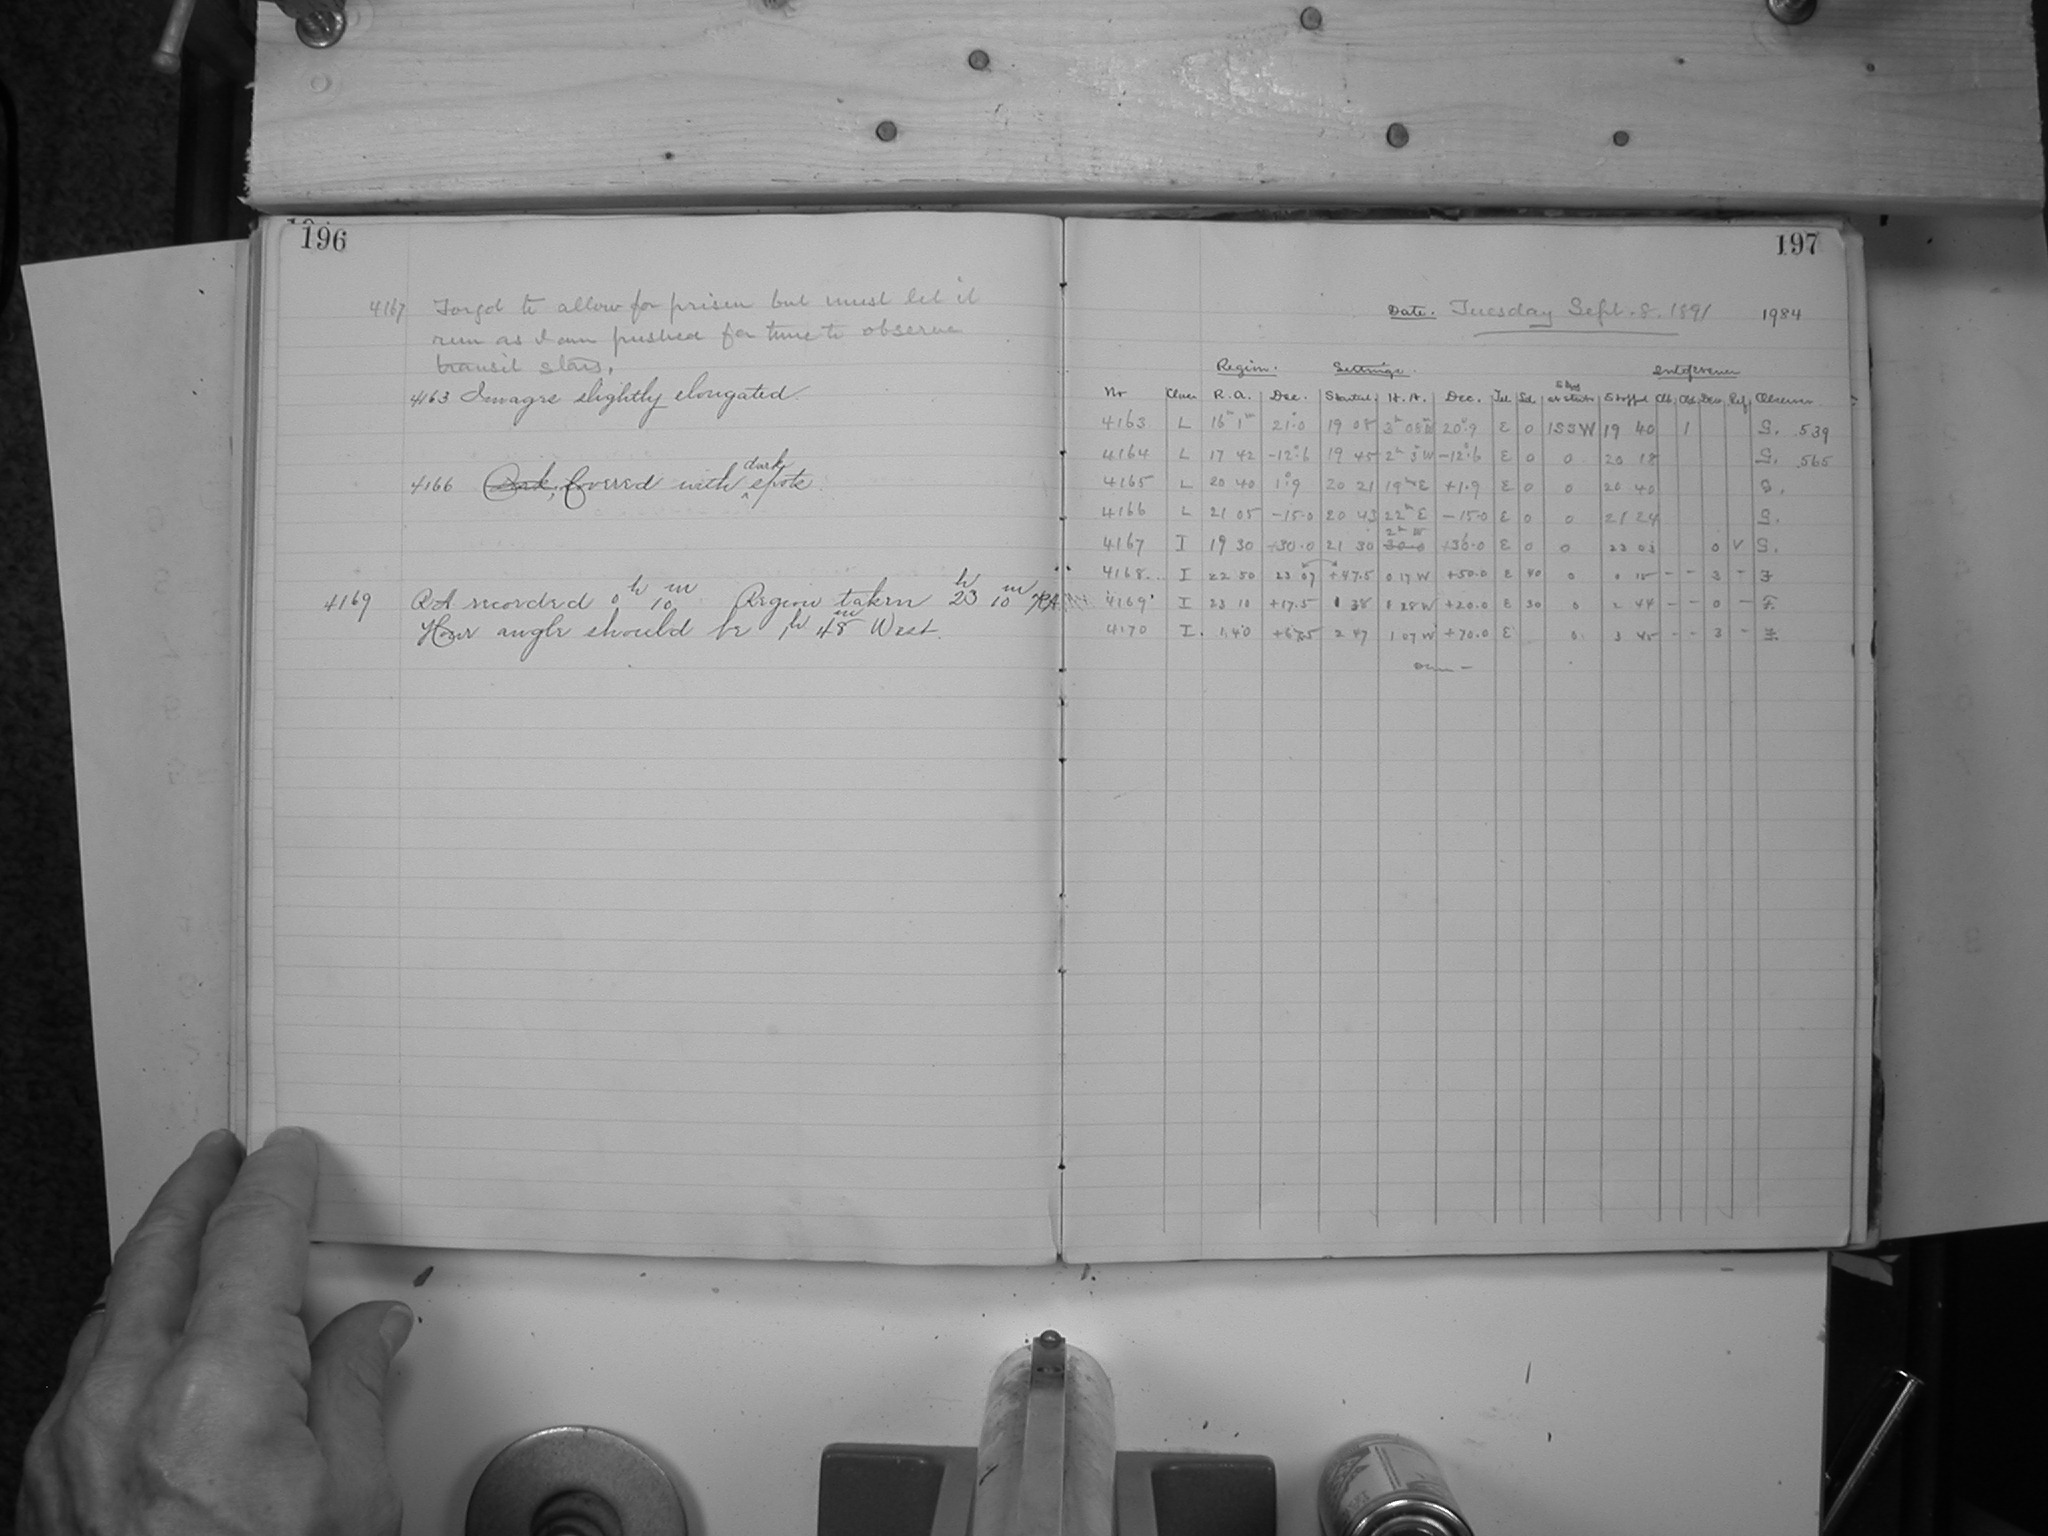 196
4167 Forgot to allow for prism but must let it
run as I am pushed for time to observe
transit stars.
4163 Images slightly elongated.
4166 Dark, Covered with dark spots.
4169 RA recorded 0h 10m Region taken 23h 10m RA
Hour angle should be 1h 48m West.
197
Date. Tuesday Sept. 8. 1891 1984
Region. Settings.
No Class R.A. Dec. Started. H.A. Dec. Tel. Sd. Stopped Observer
4163 L 16h 1m 21.0 19 08 20.9 E 0 19 40 1 G. 539
4164 L 17 42 -12.6 19 45 -12.6 E 0 0 20 18 G. 565
4165 L 20 40 1.9 20 21 19m E +1.9 E 0 0 20 40 G.
4166 L 21 05 -15.0 20 43 22m E -15.0 E 0 0 21 24 G.
4167 I 19 30 +30.0 21 30 30.0 +30.0 E 0 0 23 03 0 V G.
4168 I 22 50 23 07 +47.5 0 17 W +50.0 E 40 0 0 15 - - 3 - F
4169 I 23 10 +17.5 1 38 1 28 W +20.0 E 30 0 2 44 - - 0 - F.
4170 I. 1 40 +67.5 2 47 1 07 W +70.0 E 0 3 45 - - 3 - F.